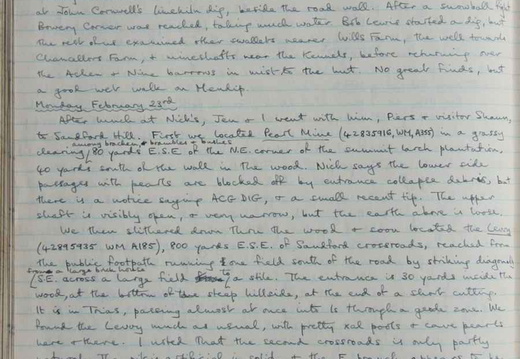 at John Cornwell's Linchin dig, beside the road wall. After a snowball fight
Bowery Corner was reached, taking much water. Bob Lewis started a dig, but
the rest of us examined other swallets nearer Wills Farm, the well towards
Chancellors Farm, + mineshafts near the Kennels, before returning over
the Achen + Nine barrows in mist to the hut. No great finds, but
a good wet walk on Mendip.
Monday February 23rd
After lunch at Nick's, Jen & I went with him, Piers & visitor Shaun,
to Sandford Hill. First we located Pearl Mine (42835916, WM, A355) in a grassy
among bracken, + brambles + bushes
clearing, 80 yards E.S.E. of the N.E. corner of the summit larch plantation.
40 yards south of the wall in the wood. Nick says the lower side
passages with pearls are blocked off by entrance collapse debris, but
there is a notice saying ACG DIG, + a small recent tip. The upper
shaft is visibly open, + very narrow, but the earth above is loose.
We then slithered down thru the wood + soon located the Levvy
(42895935 WM A185), 800 yards E.S.E. of Sandford crossroads, reached from
the public footpath running 1 one field south of the road by striking diagonally
from a large brick house
S.E. across a large field to a stile. The entrance is 30 yards inside the
wood, at the bottom of the steep hillside, at the end of a short cutting.
It is in Trias, passing almost at once into ls through a geode zone. We
found the Levvy much as usual, with pretty xal pools + cave pearls
here + there. I noted that the second crossroads is only partly